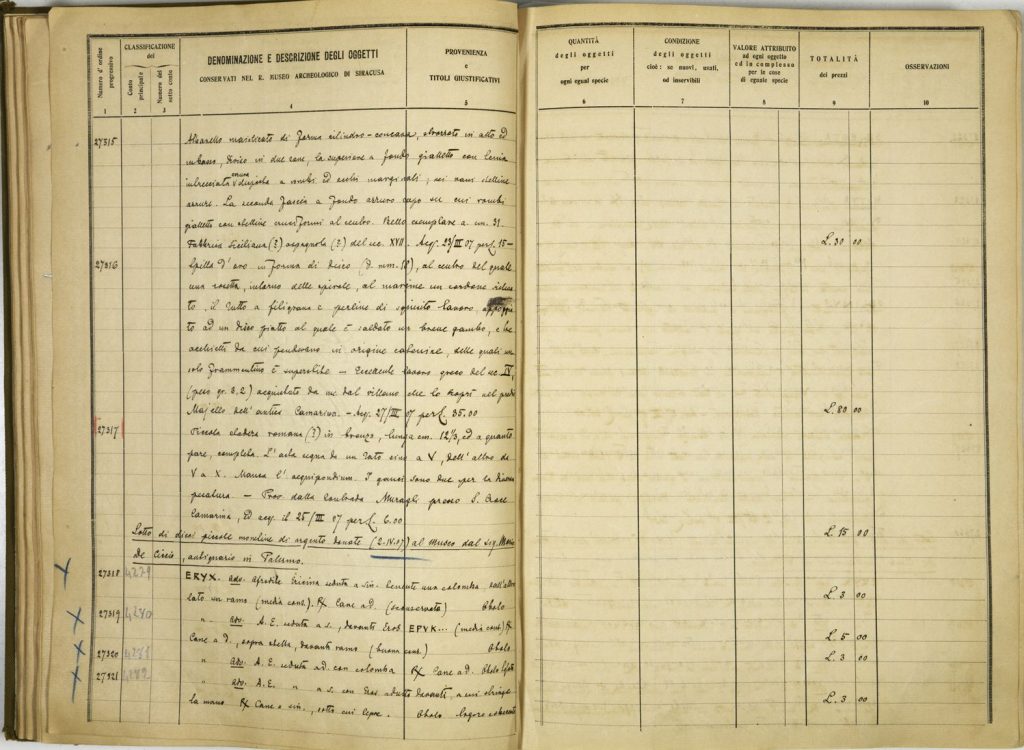 Numero d'ordine progressivo
CLASSIFICAZIONE del
Conto principale
Numero del sotto conto
DENOMINAZIONE E DESCRIZIONE DEGLI OGGETTI
CONSERVATI NEL R. MUSEO ARCHEOLOGICO DI SIRACUSA
PROVENIENZA
e
TITOLI GIUSTIFICATIVI
QUANTITÀ
degli oggetti
per
ogni egual specie
CONDIZIONE
degli oggetti
cioè: se nuovi, usati,
od inservibili
VALORE ATTRIBUITO
ad ogni oggetto
ed in complesso
per le cose
di eguale specie
TOTALITÀ
dei prezzi
OSSERVAZIONI
1 2 3 4 5 6 7 8 9 10
27315 Alberello maiolicato di forma cilindro-concava, strozzato in alto ed
in basso, diviso in due zone, la superiore a fondo gialletto con
intrecciata a rombi ed occhi marginali; nei vani stelline
azzurre. La seconda fascia a fondo azzurro cupo su cui rombi
gialletti con stelline cruciformi al centro. Bello esemplare a cm. 31.
Fabbrica Siciliana (?) o spagnola (?) del sec. XVII. Acq. 23/III 07 per £. 15- L. 30 00
27316 Spilla d'oro in forma di disco (d. mm. 18), al centro del quale
una rosetta, intorno delle spirale, al margine un cordone
to, il tutto a filigrana e perline di squisito lavoro,
to ad un disco piatto al quale è saldato un breve gambo, e tre
occhietti da cui pendevano in origine catenine, delle quali un
solo frammentino è superstite. - Eccellente lavoro greco del sec. IV,
(peso gr. 3,2) acquistato da me dal villano che lo scoprì nel predio
Majello dell'antica Camarina. - Acq. 27/III 07 per £. 35.00 L. 80 00
27317 Piccola stadera romana (?) in bronzo, lunga cm. 12 1/3, ed a quanto
pare, completa. L'asta segna da un lato sino a V, dell'altro da
V a X. Manca l'aequipondium. I ganci sono due per la
pesatura. - Prov. dalla Contrada Muragli presso S. Croce
Camarina, ed acq. il 25/III 07 per £. 6.00 L. 15 00
Lotto di dieci piccole monetine di argento donate (2-IV.07) al Museo dal sig.
De Ciccio, antiquario in Palermo.
27318 4279 ERYX. adv. Afrodite Ericina seduta a sin. tenente una colomba, dall'altro
lato un ramo (media cons.). Rx Cane a d. (sconservato) Obolo L. 3 00
27319 4280 " adv. A. E. seduta a s., davanti Eros ΕΡΥΚ... (media cons.) Rx
Cane a d., sopra stella, davanti ramo (buona cons.) Obolo L. 5 00
27320 4281 " adv. A. E. seduta a d. con colomba Rx Cane a d. Obolo L. 3 00
27321 4282 " adv. A. E. " a s. con Eros davanti, a cui stringe
la mano Rx Cane a sin., sotto cui lepre. Obolo logoro L. 3 00